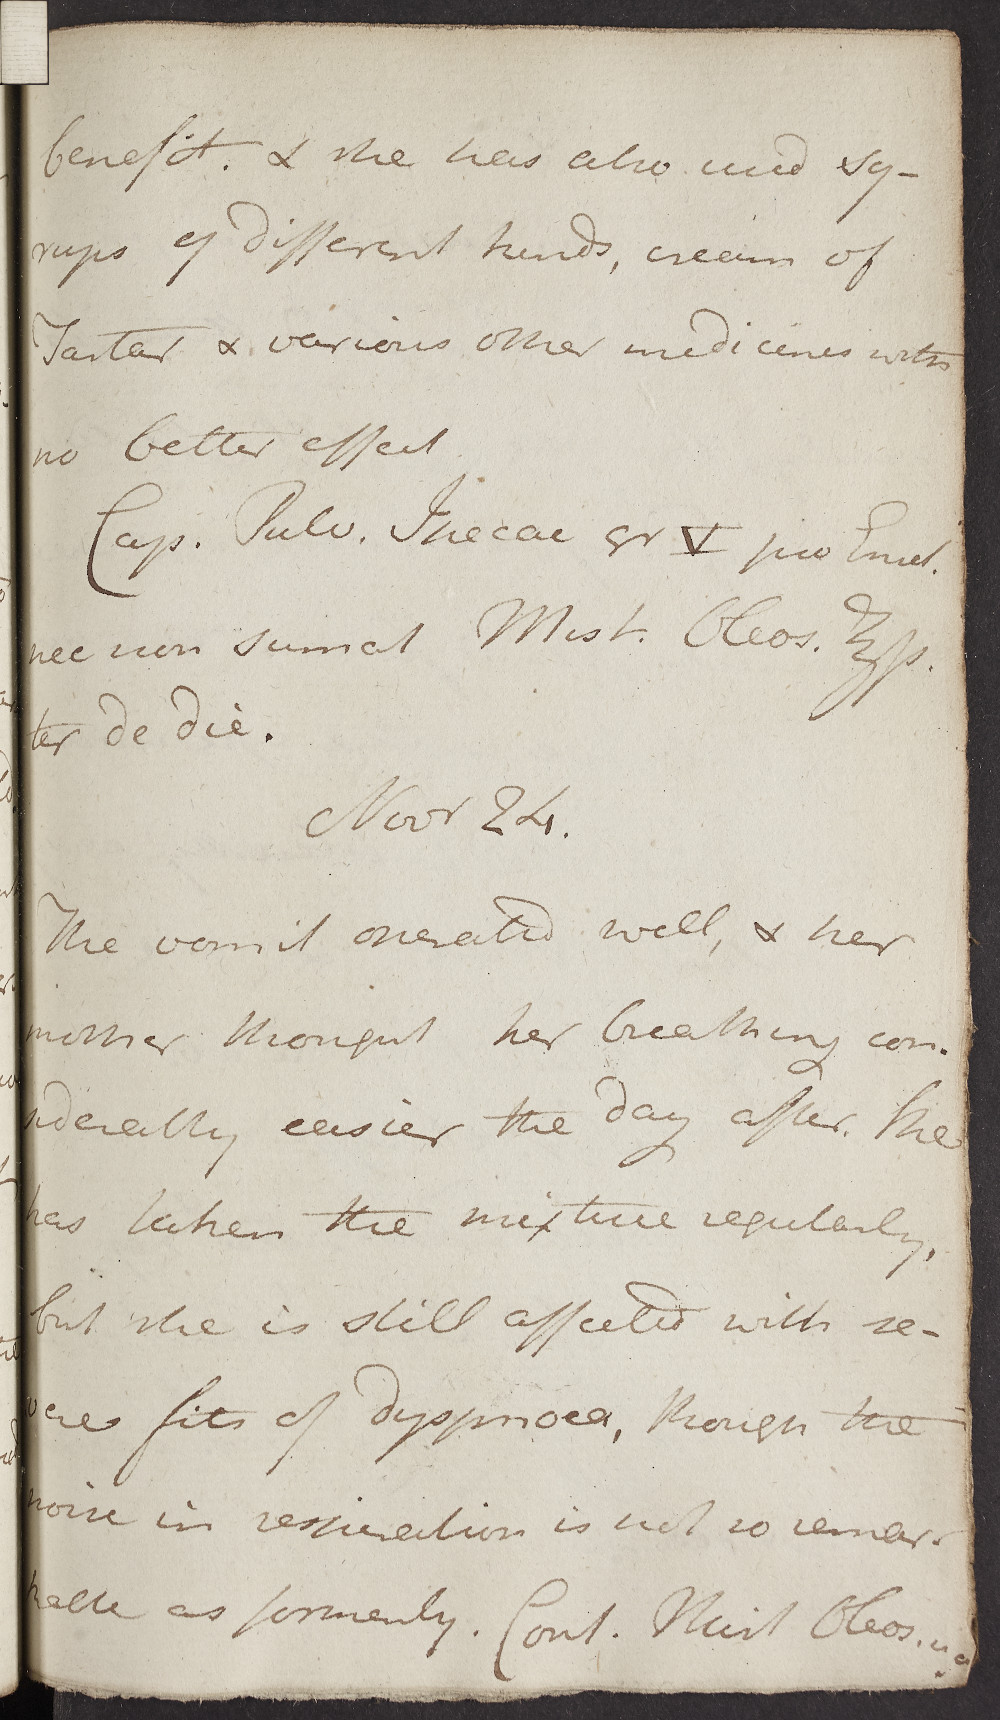 benefit. & she has also used sy-
rups of different kinds, cream of
Tartar & various other medicines with
no better effect
Cap. Pulv. Ipecac gr V pro Emet.
nec non sumat Mist. Oleos. ℥ſs.
ter de die.
Novr 24.
The vomit operated well, & her
mother thought her breathing con-
siderably easier the day after. She
has taken the mixture regularly,
but she is still affected with se-
veres fits of dyspnoea, though the
noise in respiration is not so remar-
kable as formerly. Cont. Mist Oleos.